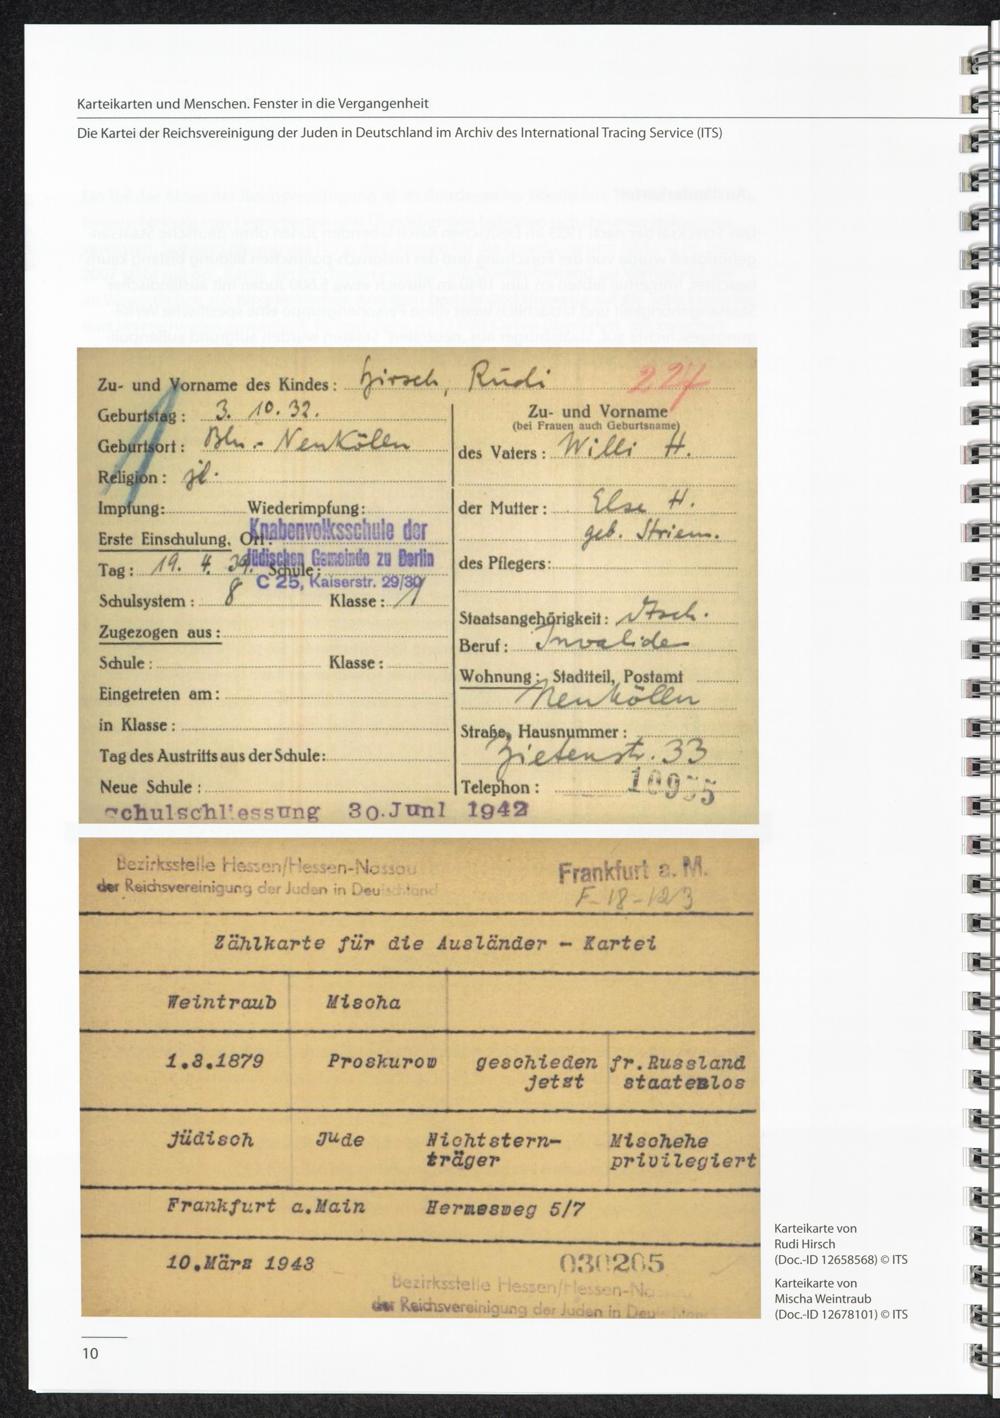 Karteikarten und Menschen. Fenster in die Vergangenheit
Die Kartei der Reichsvereinigung der Juden in Deutschland im Archiv des International Tracing Service (ITS)
Zu- und Vorname des Kindes: Hirsch, Rudi 227
Geburtstag: 3. 10. 32.
Geburtsort: Bln.- Neukölln
Religion: jd.
Impfung: Wiederimpfung:
Erste Einschulung, Ort:
Knabenvolksschule der
Jüdischen Gemeinde zu Berlin
C 25, Kaiserstr. 29/30
Tag: 19. 4. 39. Schule:
Schulsystem: 8 Klasse: 1
Zugezogen aus:
Schule: Klasse:
Eingetreten am:
in Klasse:
Tag des Austritts aus der Schule:
Neue Schule:
Zu- und Vorname
(bei Frauen auch Geburtsname)
des Vaters: Willi H.
der Mutter: Else H.
geb. Striem.
des Pflegers:
Staatsangehörigkeit: dtsch.
Beruf: Invalide
Wohnung: Stadtteil, Postamt
Neukölln
Straße, Hausnummer:
Zietenstr. 33
Telephon: 10955
Schulschliessung 30.Juni 1942
Bezirksstelle Hessen/Hessen-Nassau
der Reichsvereinigung der Juden in Deutschland
Frankfurt a. M.
F-18-12/3
Zählkarte für die Ausländer - Kartei
Weintraub Mischa
1.8.1879 Proskurow geschieden fr.Russland
jetzt staatenlos
jüdisch Jude Nichtstern- Mischehe
träger privilegiert
Frankfurt a.Main Hermesweg 5/7
10.März 1943 030205
Bezirksstelle Hessen/Hessen-Nassau
der Reichsvereinigung der Juden in Deutschland
Karteikarte von
Rudi Hirsch
(Doc.-ID 12658568) © ITS
Karteikarte von
Mischa Weintraub
(Doc.-ID 12678101) © ITS
10